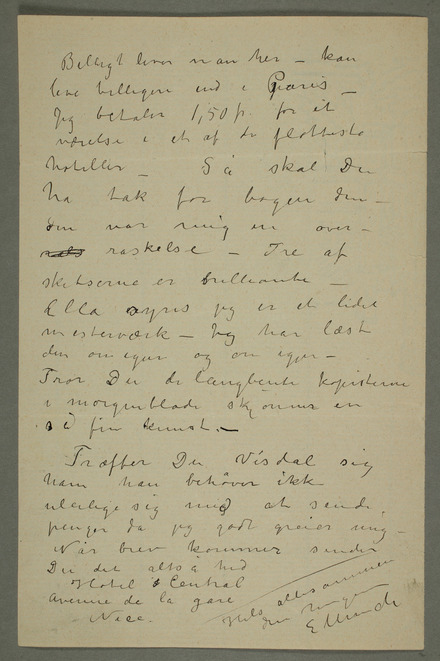 Billigt lever man her – kan
leve billigere end i Paris –
Jeg betaler 1,50 fr. for et
værelse i et af de flotteste
hoteller – Så skal Du
ha tak for bogen din –
den var mig en over-
raskelse – Tre af
skitserne er brilliante –
Ella synes jeg er et lidet
mesterværk – Jeg har læst
den om igjen og om igjen –
Tror Du de langbente kopisterne
i morgenblade skjønner en
så fin kunst. –
Træffer Du Visdal sig
ham han behøver ikk
uleilige sig med at sende
penger da jeg godt greier mig –
Når brev kommer sender
Du det altså hid
Hotel Central
Avenue de la gare
Nice.
Hils allesammen
din
E Munch